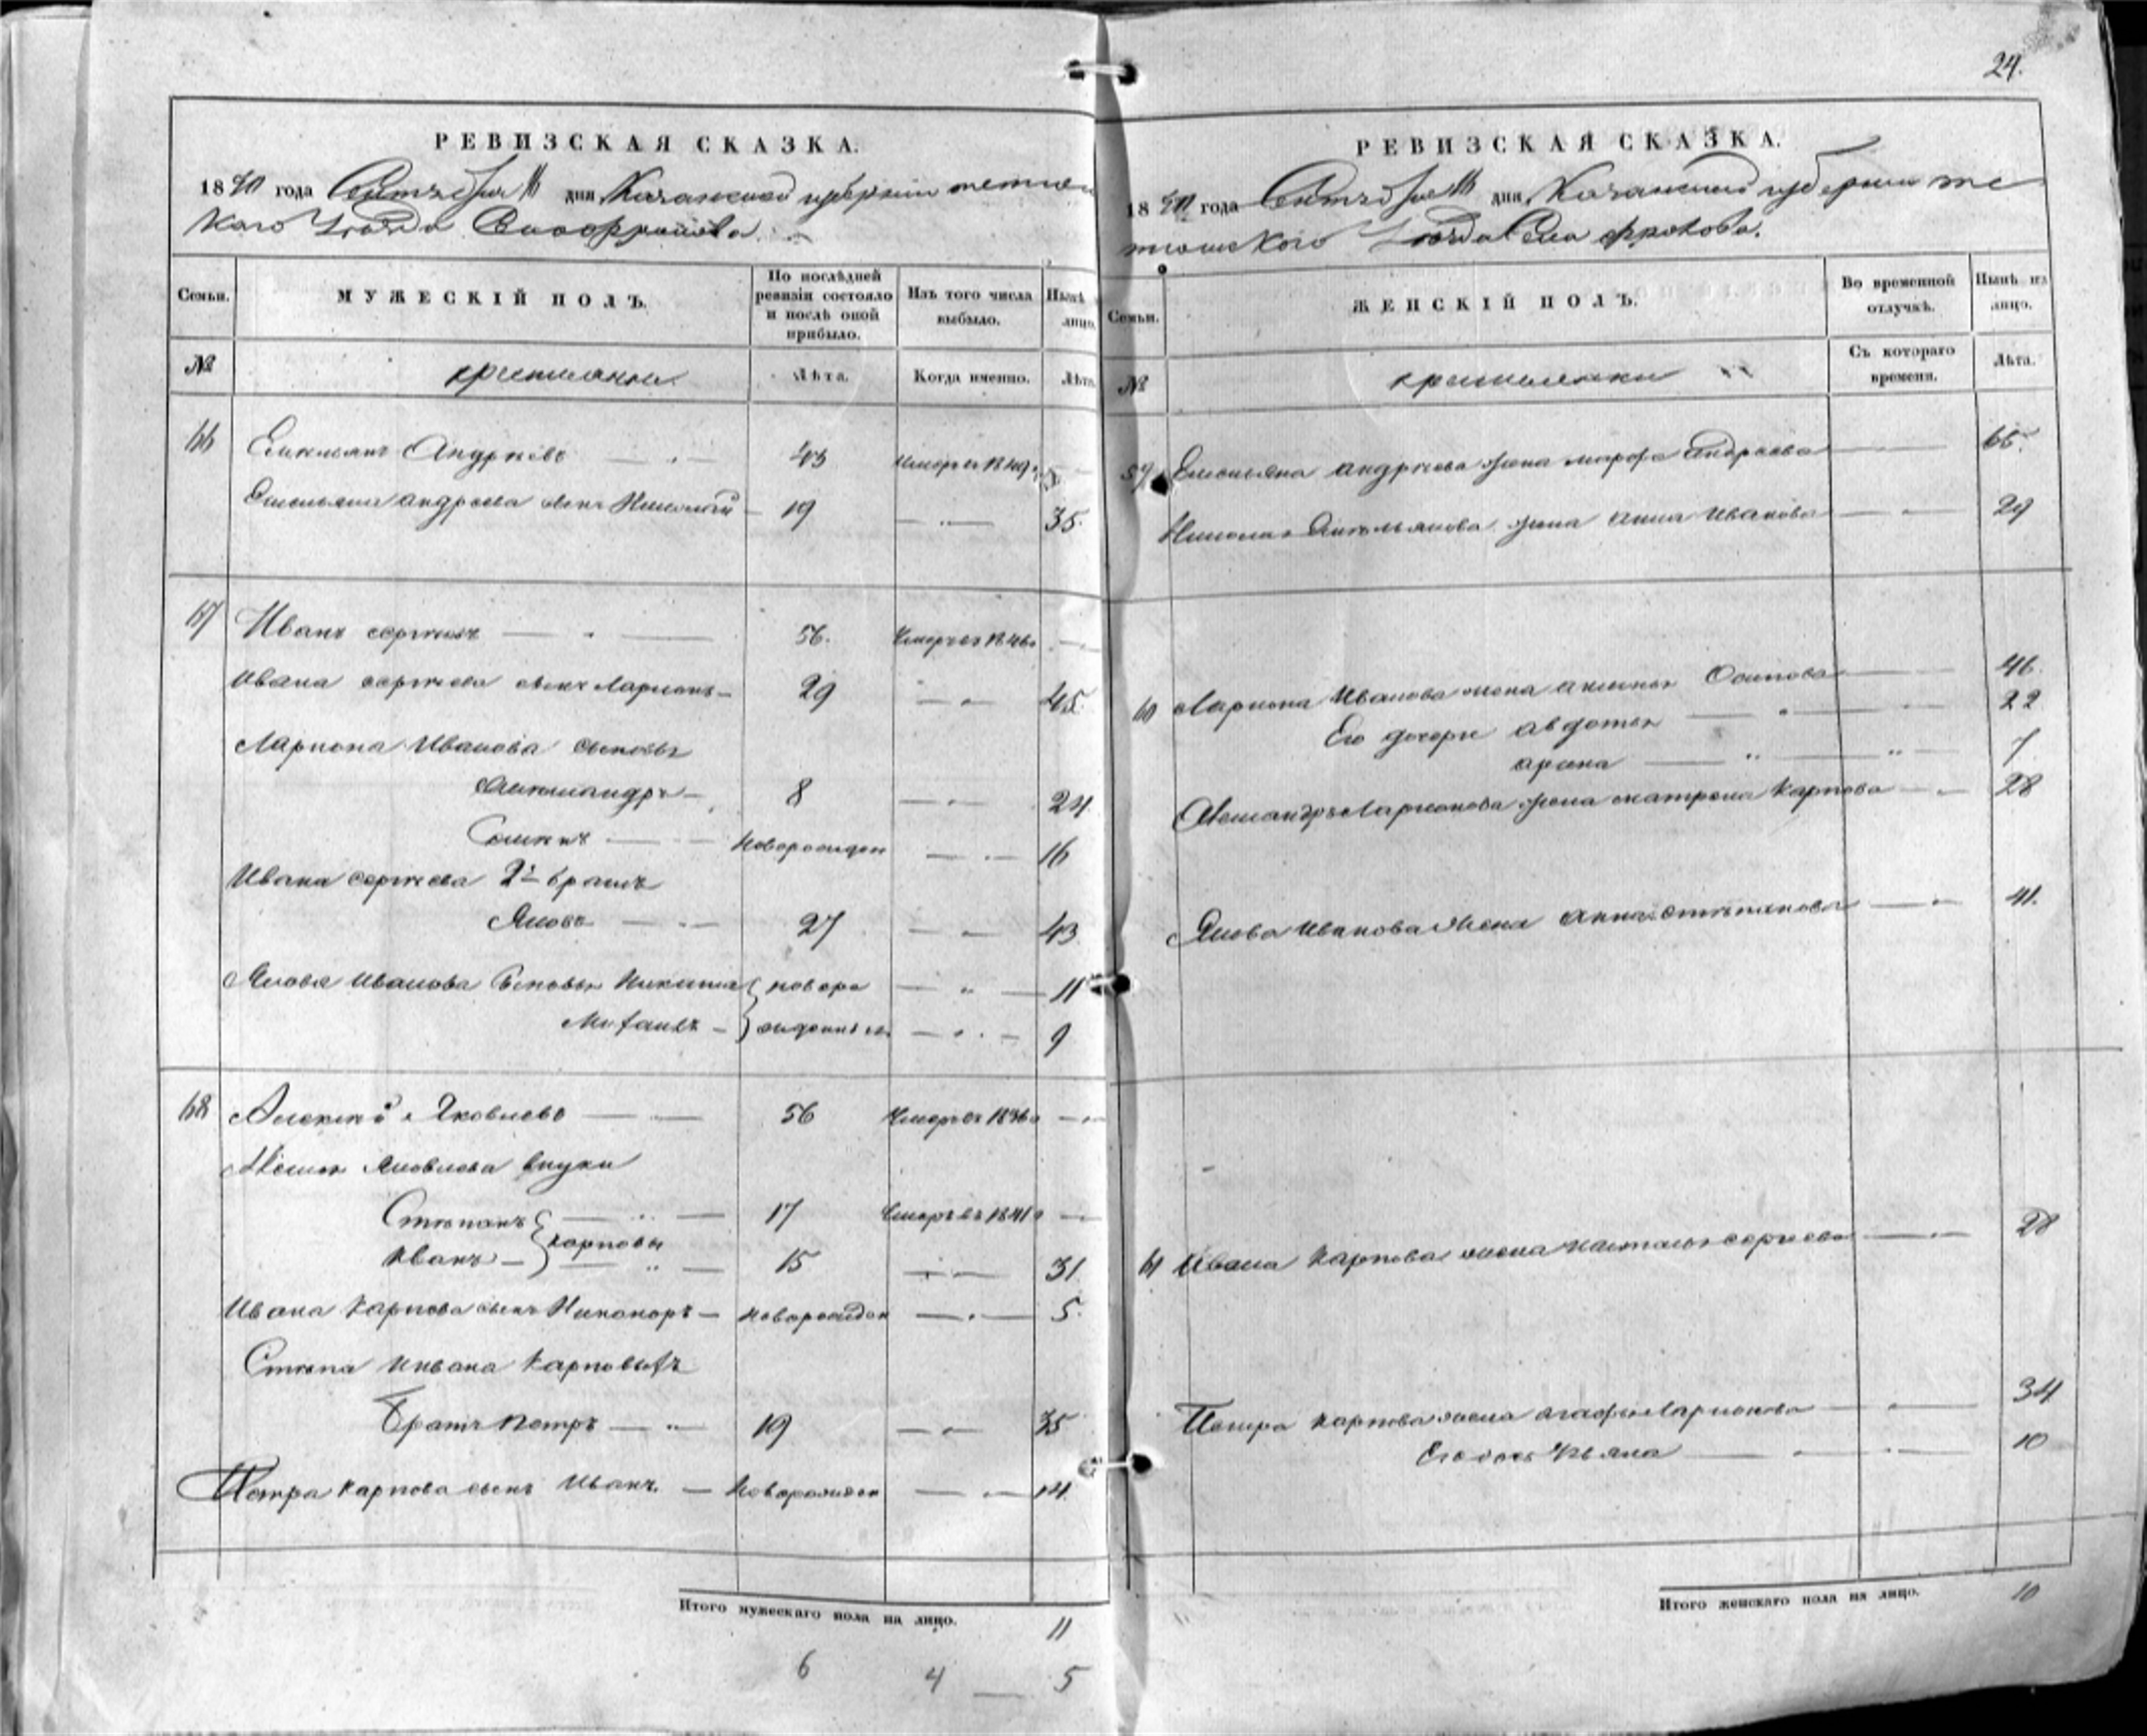 РЕВИЗСКАЯ СКАЗКА.
1850 года Октября дня Казанской губернии тетюш
каго Уезда Села Фролова.
Семьи.
МУЖЕСКІЙ ПОЛЪ.
По послѣдней ревизіи состояло и послѣ оной прибыло.
Изъ того числа выбыло.
Нынѣ лицо.
№
крестьяне
Лѣта.
Когда именно.
Лѣта
66 Емельянъ Андреевъ 43 Умеръ въ 1849
Емельяна андреева сынъ Николай 19 35
67 Иванъ сергѣевъ 56. Умеръ въ 1846
Ивана сергѣева сынъ Ларионъ 29 45
Лариона Иванова сыновья
Александръ 8 24
Семенъ Новорожден 16
Ивана сергѣева 2й братъ
Яковъ 27 43
Якова Иванова Сыновья Никита новоро 11
Михаилъ жденные 9
68 Алексѣй Яковлевъ 56 Умеръ въ 1836
Яковлева внуки
Степанъ 17 Умеръ въ 1841
карповы
Иванъ 15 31
Ивана Карпова сынъ Никаноръ Новорожден 5
Степа Ивана Карповыхъ
Братъ Петръ 19 35
Петра Карпова сынъ Иванъ Новорожден 14
Итого мужескаго пола на лицо. 11
6 4 5
24.
РЕВИЗСКАЯ СКАЗКА.
1850 года Октября дня Казанской губерніи те
тюшскаго Уезда Села Фролова.
Семьи.
ЖЕНСКІЙ ПОЛЪ.
Во временной отлучкѣ.
Нынѣ на лицо.
№
крестьянки
Съ котораго времени.
Лѣта.
59 Емельяна андреева жена марфа андреева 65
Николая Емельянова жена анна Иванова 29
60 Лариона Иванова жена аксинья Осипова 46
Его дочери авдотья 22
арина 7
Александра Ларионова жена матрена Карпова 28
Якова Иванова жена анна степанова 41
61 Ивана Карпова жена настасья сергеева 28
Петра карпова жена агафья Ларионова 34
Его дочь 10
Итого женскаго пола на лицо. 10